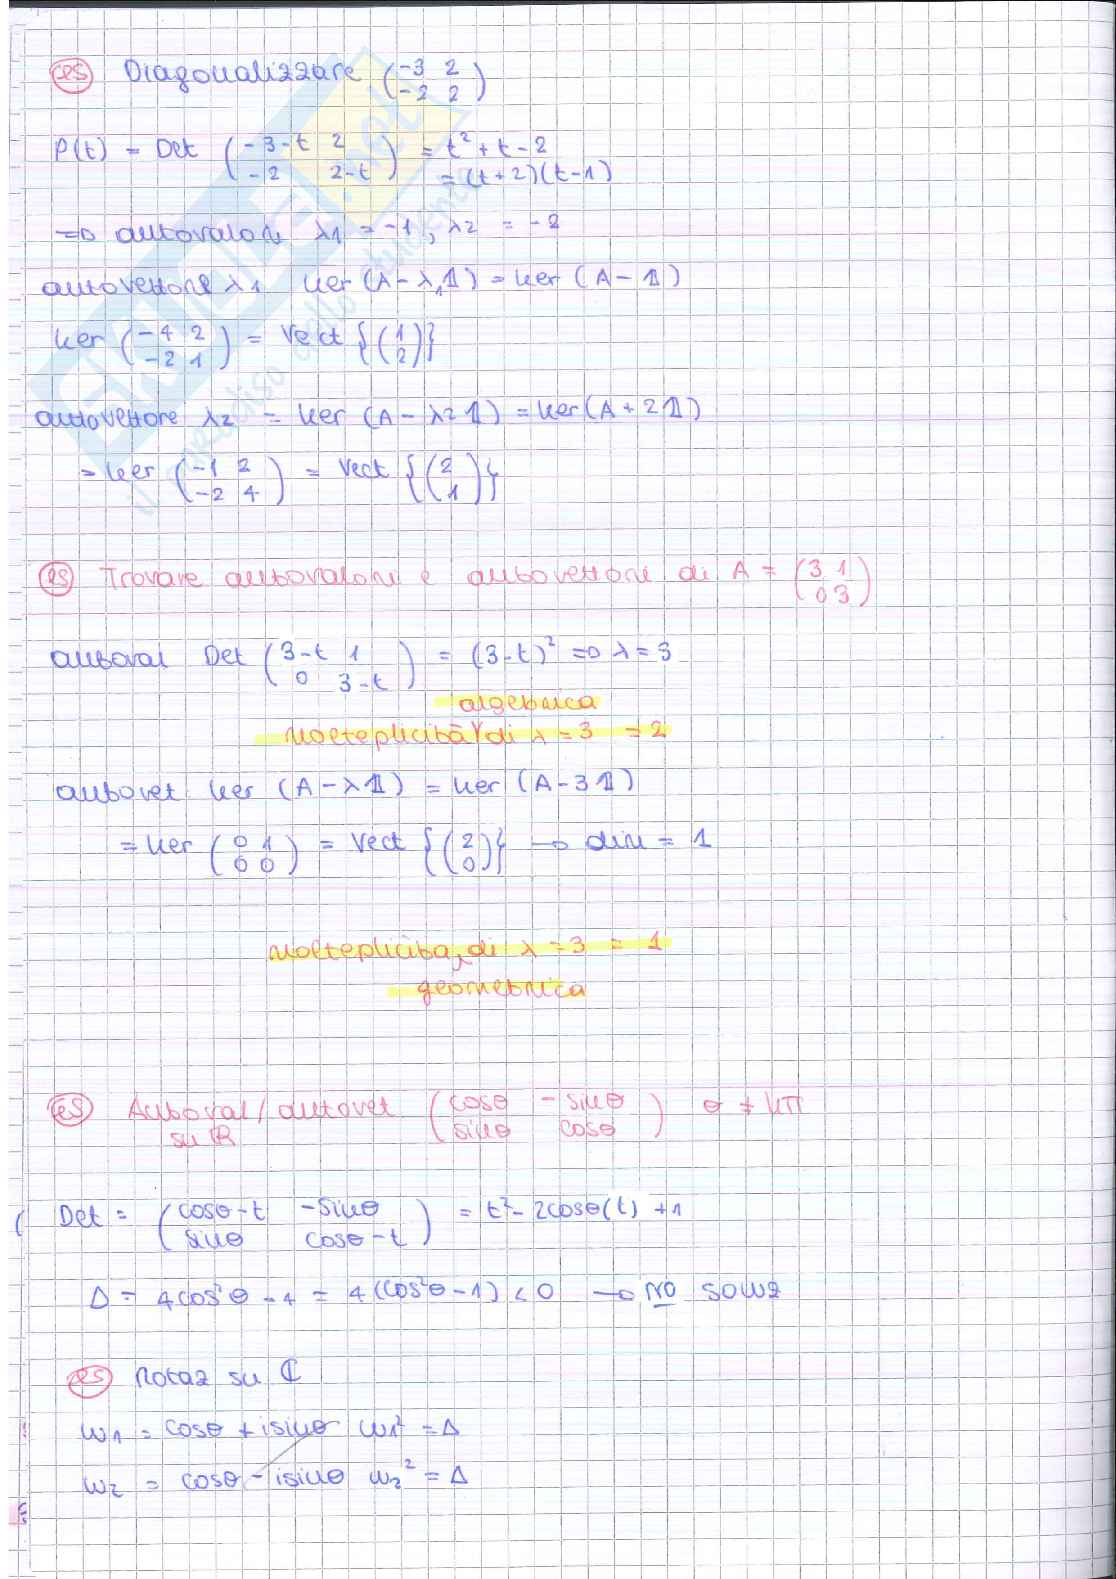 es Diagonalizzare (-3 2
-2 2)
P(t) = Det (-3-t 2 = t² + t - 2
-2 2-t) = (t+2)(t-1)
=> autovalori λ1 = -1, λ2 = -2
autovettore λ1 ker (A - λ1 𝟙) = ker (A - 𝟙)
ker (-4 2 = Vect {(1
-2 1) 2)}
autovettore λ2 = ker (A - λ2 𝟙) = ker (A + 2𝟙)
= ker (-1 2 = Vect {(2
-2 4) 1)}
es Trovare autovalori e autovettori di A = (3 1
0 3)
autoval Det (3-t 1 = (3-t)² => λ = 3
0 3-t)
algebrica
Molteplicità di λ = 3 = 2
autovet ker (A - λ𝟙) = ker (A - 3𝟙)
= ker (0 1 = Vect {(2 → dim = 1
0 0) 0)}
Molteplicita di λ = 3 = 1
geometrica
es Autoval / autovet (cosθ -sinθ θ ≠ kπ
su ℝ sinθ cosθ)
Det = (cosθ-t -sinθ = t² - 2cosθ(t) + 1
sinθ cosθ-t)
Δ = 4cos²θ - 4 = 4(cos²θ - 1) < 0 → NO soluz
es Rotaz su ℂ
w1 = cosθ + isinθ w1² = Δ
w2 = cosθ - isinθ w2² = Δ